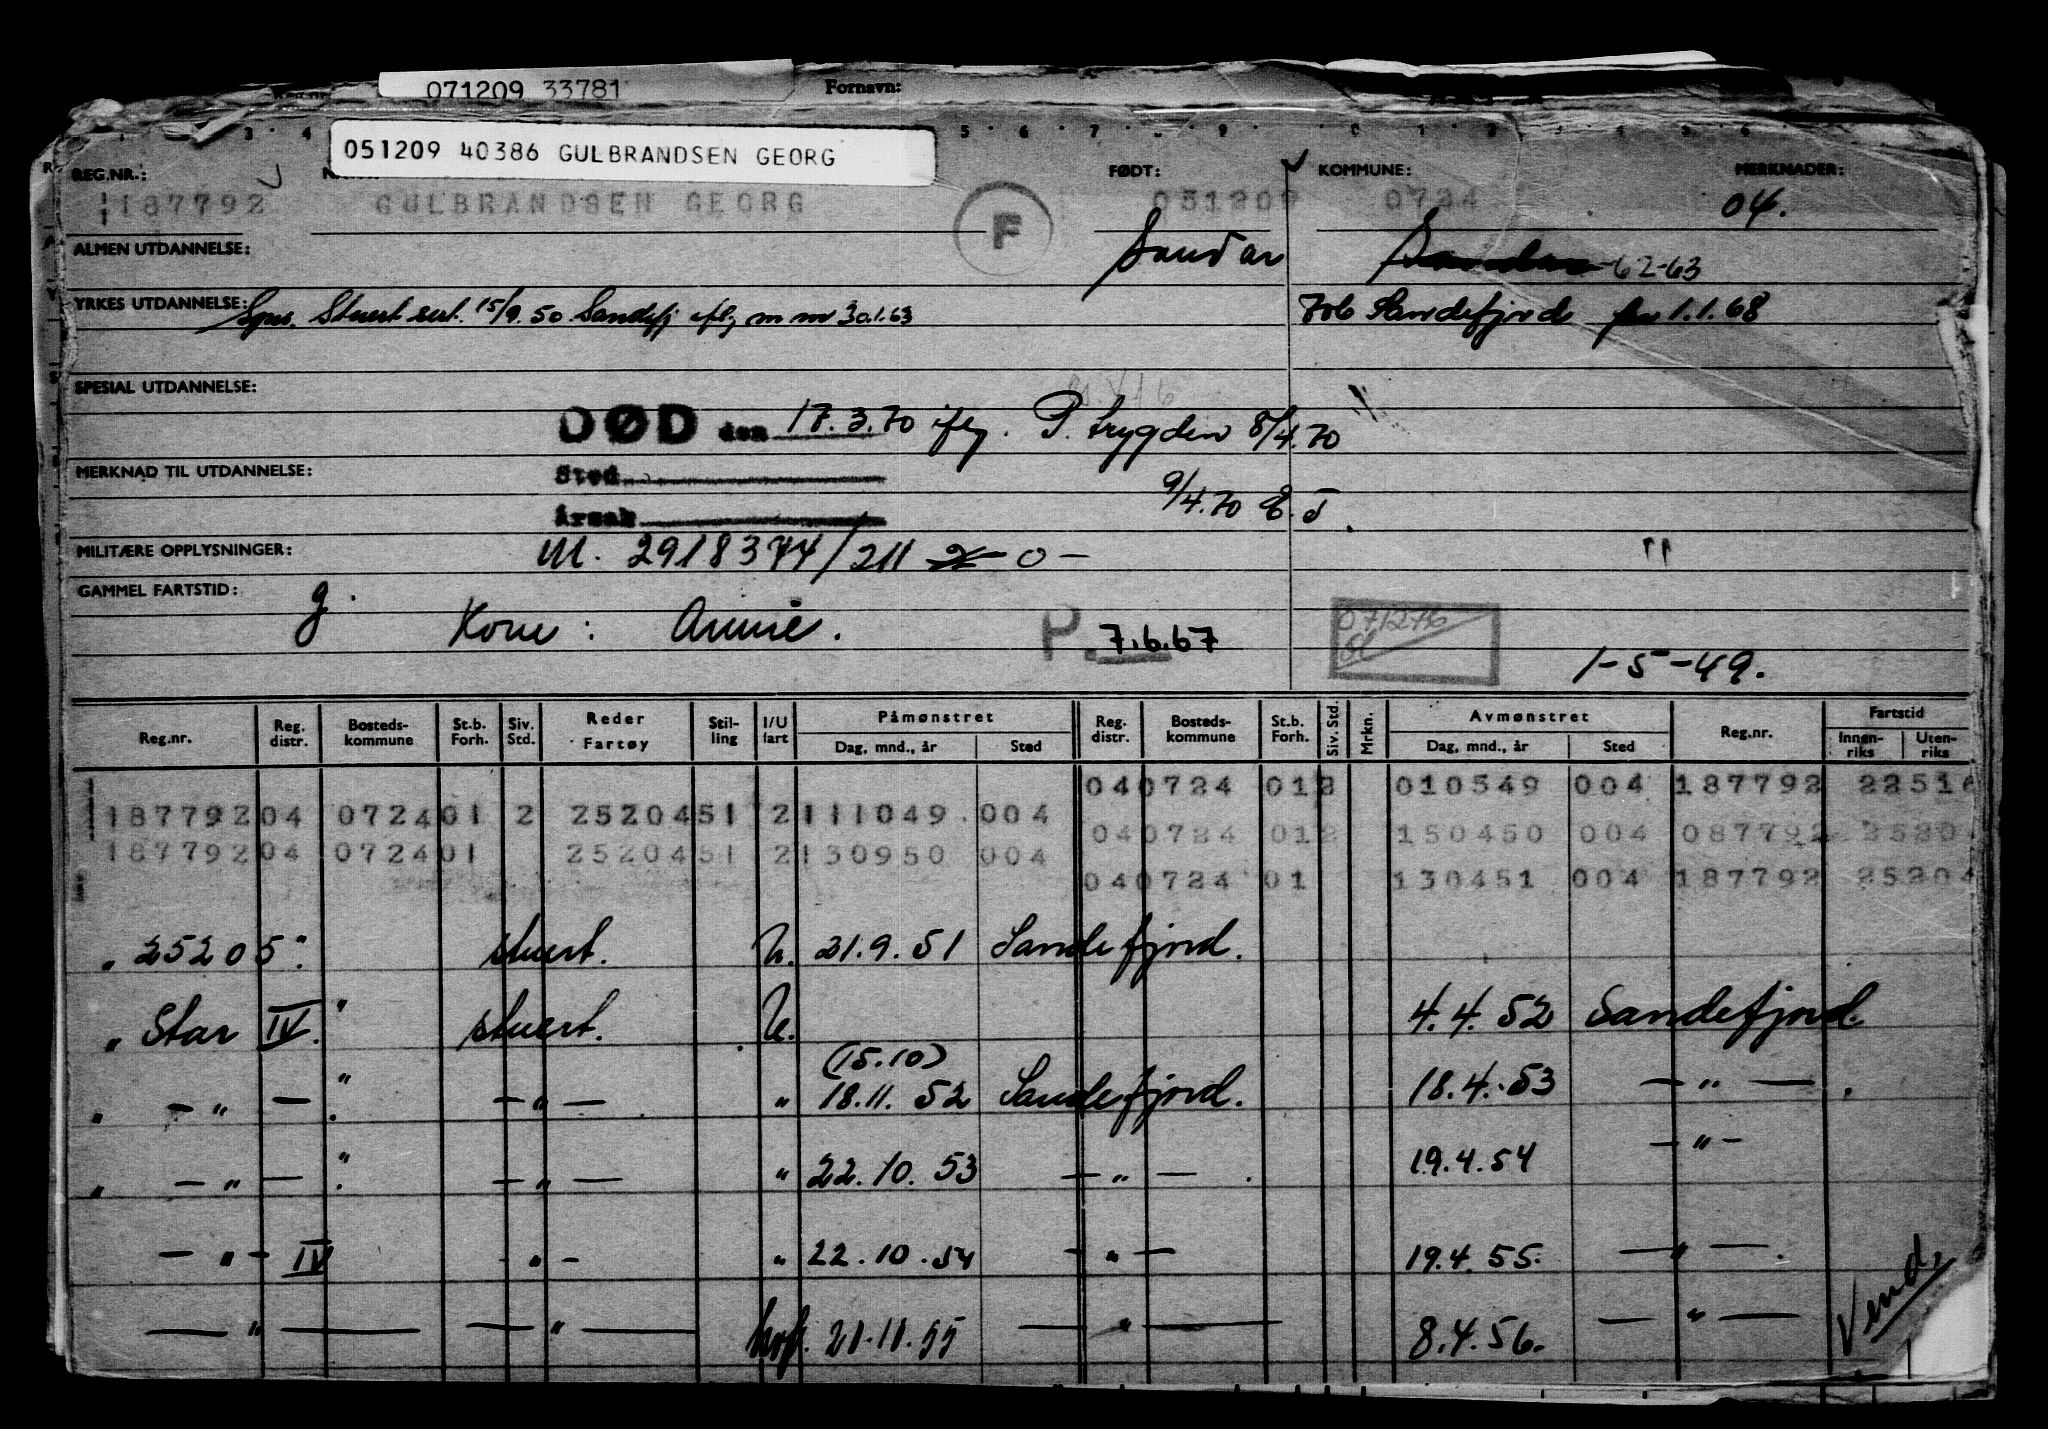 071209 33781 Fornavn:
051209 40386 GULBRANDSEN GEORG
REG.NR.: FØDT: KOMMUNE: MERKNADER:
187792 GULBRANDSEN GEORG F 051209 0724 04.
ALMEN UTDANNELSE: Sandar 62-63
YRKES UTDANNELSE: Stuert sert. 15/9.50. Sandefj iflg m m 30.1.63 706 Sandefjord fra 1.1.68
SPESIAL UTDANNELSE:
DØD den 17.3.70 iflg. P. trygden 8/4.70
MERKNAD TIL UTDANNELSE: Sted
9/4.70 E.T.
Årsak
MILITÆRE OPPLYSNINGER: M. 2918374/211 0 - "
GAMMEL FARTSTID: g.
Kone: Annie. P. 7.6.67 071276
1-5-49.
Reg.nr. Reg. distr. Bosteds-kommune St.b. Forh. Siv. Std. Reder Fartøy Stil-ling I/U fart Påmønstret Dag, mnd., år Sted Reg. distr. Bosteds-kommune St.b. Forh. Siv. Std. Mrkn. Avmønstret Dag, mnd., år Sted Reg.nr. Fartstid Innen-riks Uten-riks
040724 012 010549 004 187792 22516
187792 04 0724 01 2 2520451 2 111049 004
040724 012 150450 004 087792 2520
187792 04 0724 01 2520451 2 130950 004
040724 01 130451 004 187792 25204
" 25205 " stuert. U. 21.9.51 Sandefjord.
" Star IV. " stuert. U. 4.4.52 Sandefjord.
(15.10)
" - " - " - " - " 18.11.52 Sandefjord. 18.4.53 - " - .
" - " - " - " - " 22.10.53 - " - . 19.4.54 - " -
- " - IV - " - " 22.10.54 - " - 19.4.55. - " - .
- " - - " - hvf. 21.11.55 - " - 8.4.56. - " -
Vend.